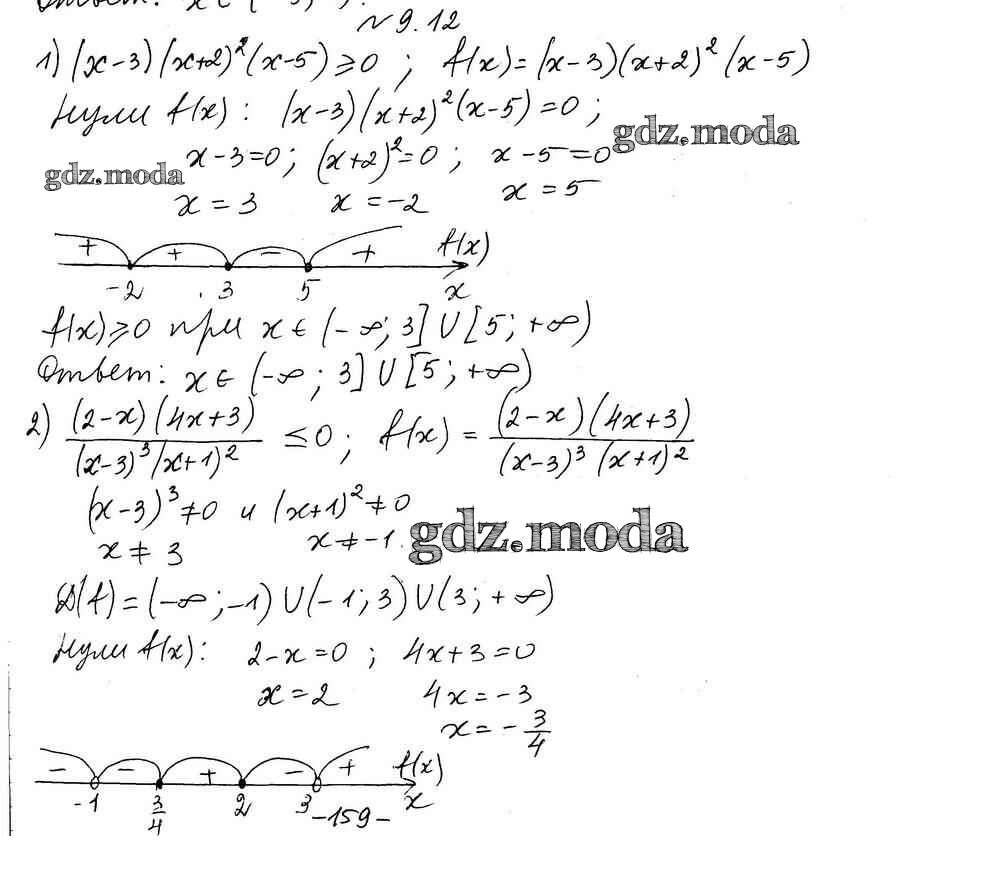 Ответ: x ∈ (
N 9.12
1) (x-3)(x+2)²(x-5) ≥ 0 ; f(x) = (x-3)(x+2)² (x-5)
Нули f(x) : (x-3)(x+2)²(x-5) = 0 ;
gdz.moda
x-3=0 ; (x+2)²=0 ; x-5=0
gdz.moda
x = 3 x = -2 x = 5
+ + - + f(x)
-2 3 5 x
f(x) ≥ 0 при x ∈ (-∞; 3] U [5; +∞)
Ответ: x ∈ (-∞; 3] U [5; +∞)
2) (2-x)(4x+3) / (x-3)³(x+1)² ≤ 0 ; f(x) = (2-x)(4x+3) / (x-3)³ (x+1)²
(x-3)³ ≠ 0 и (x+1)² ≠ 0
gdz.moda
x ≠ 3 x ≠ -1.
D(f) = (-∞; -1) U (-1; 3) U (3; +∞)
Нули f(x) : 2-x=0 ; 4x+3=0
x = 2 4x = -3
x = - 3/4
- - + - + f(x)
-1 3/4 2 3 x
-159-